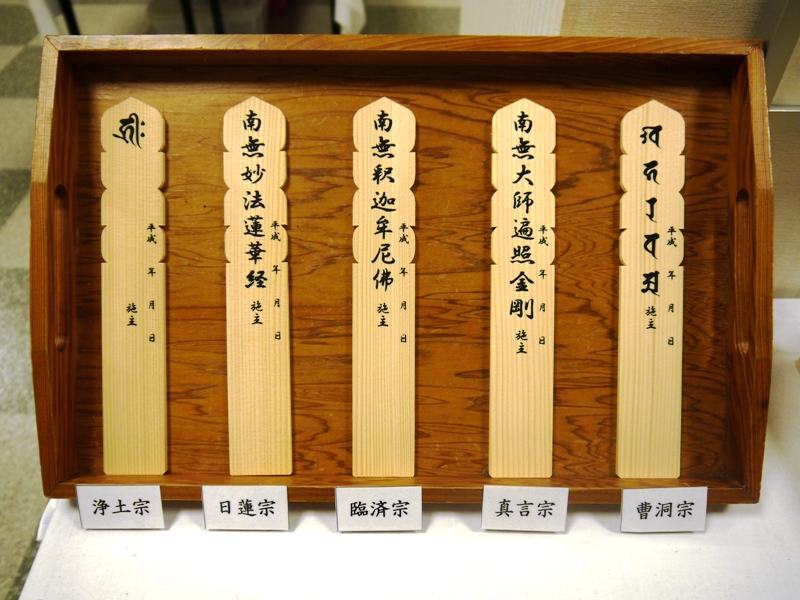 平成 年 月 日
施主
浄土宗
南無妙法蓮華経
平成 年 月 日
施主
日蓮宗
南無釈迦牟尼佛
平成 年 月 日
施主
臨済宗
南無大師遍照金剛
平成 年 月 日
施主
真言宗
平成 年 月 日
施主
曹洞宗